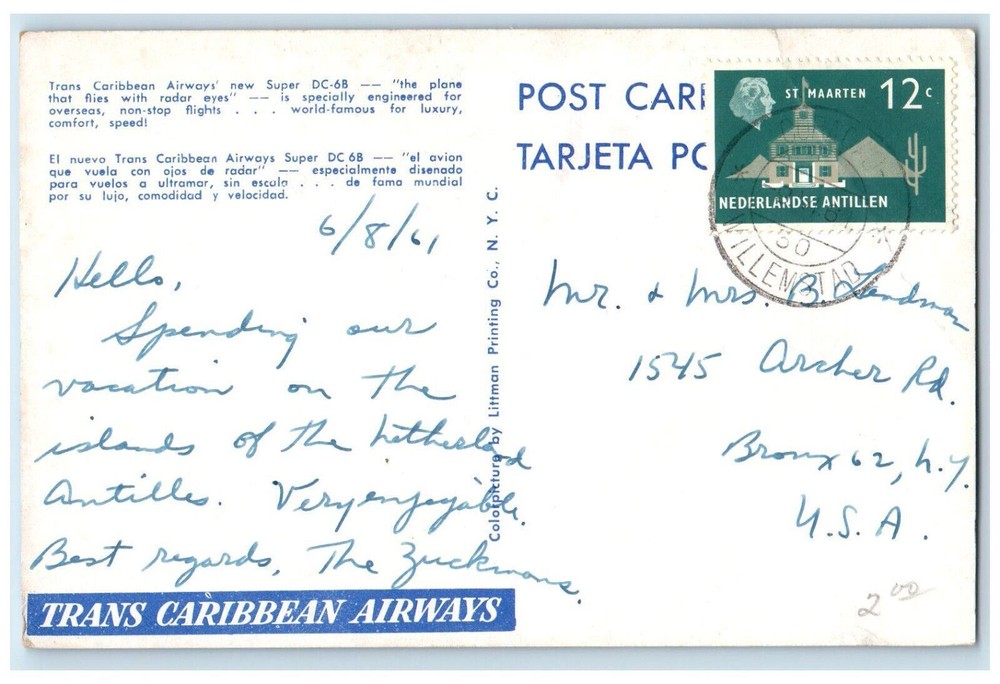 Trans Caribbean Airways' new Super DC-6B — "the plane
that flies with radar eyes" — is specially engineered for
overseas, non-stop flights . . . world-famous for luxury,
comfort, speed!
El nuevo Trans Caribbean Airways Super DC 6B — "el avion
que vuela con ojos de radar" — especialmente disenado
para vuelos a ultramar, sin escala . . . de fama mundial
por su lujo, comodidad y velocidad.
6/8/61
Hello,
Spending our
vacation on the
islands of the Netherland
Antilles. Very enjoyable.
Best regards, The Zuckmans.
TRANS CARIBBEAN AIRWAYS
Colorpicture by Littman Printing Co., N. Y. C.
POST CAR
TARJETA PO
ST MAARTEN 12 c
NEDERLANDSE ANTILLEN
30
WILLEMSTAD
Mr. & Mrs. B. Landman
1545 Archer Rd.
Bronx 62, N.Y.
U.S.A.
2 00